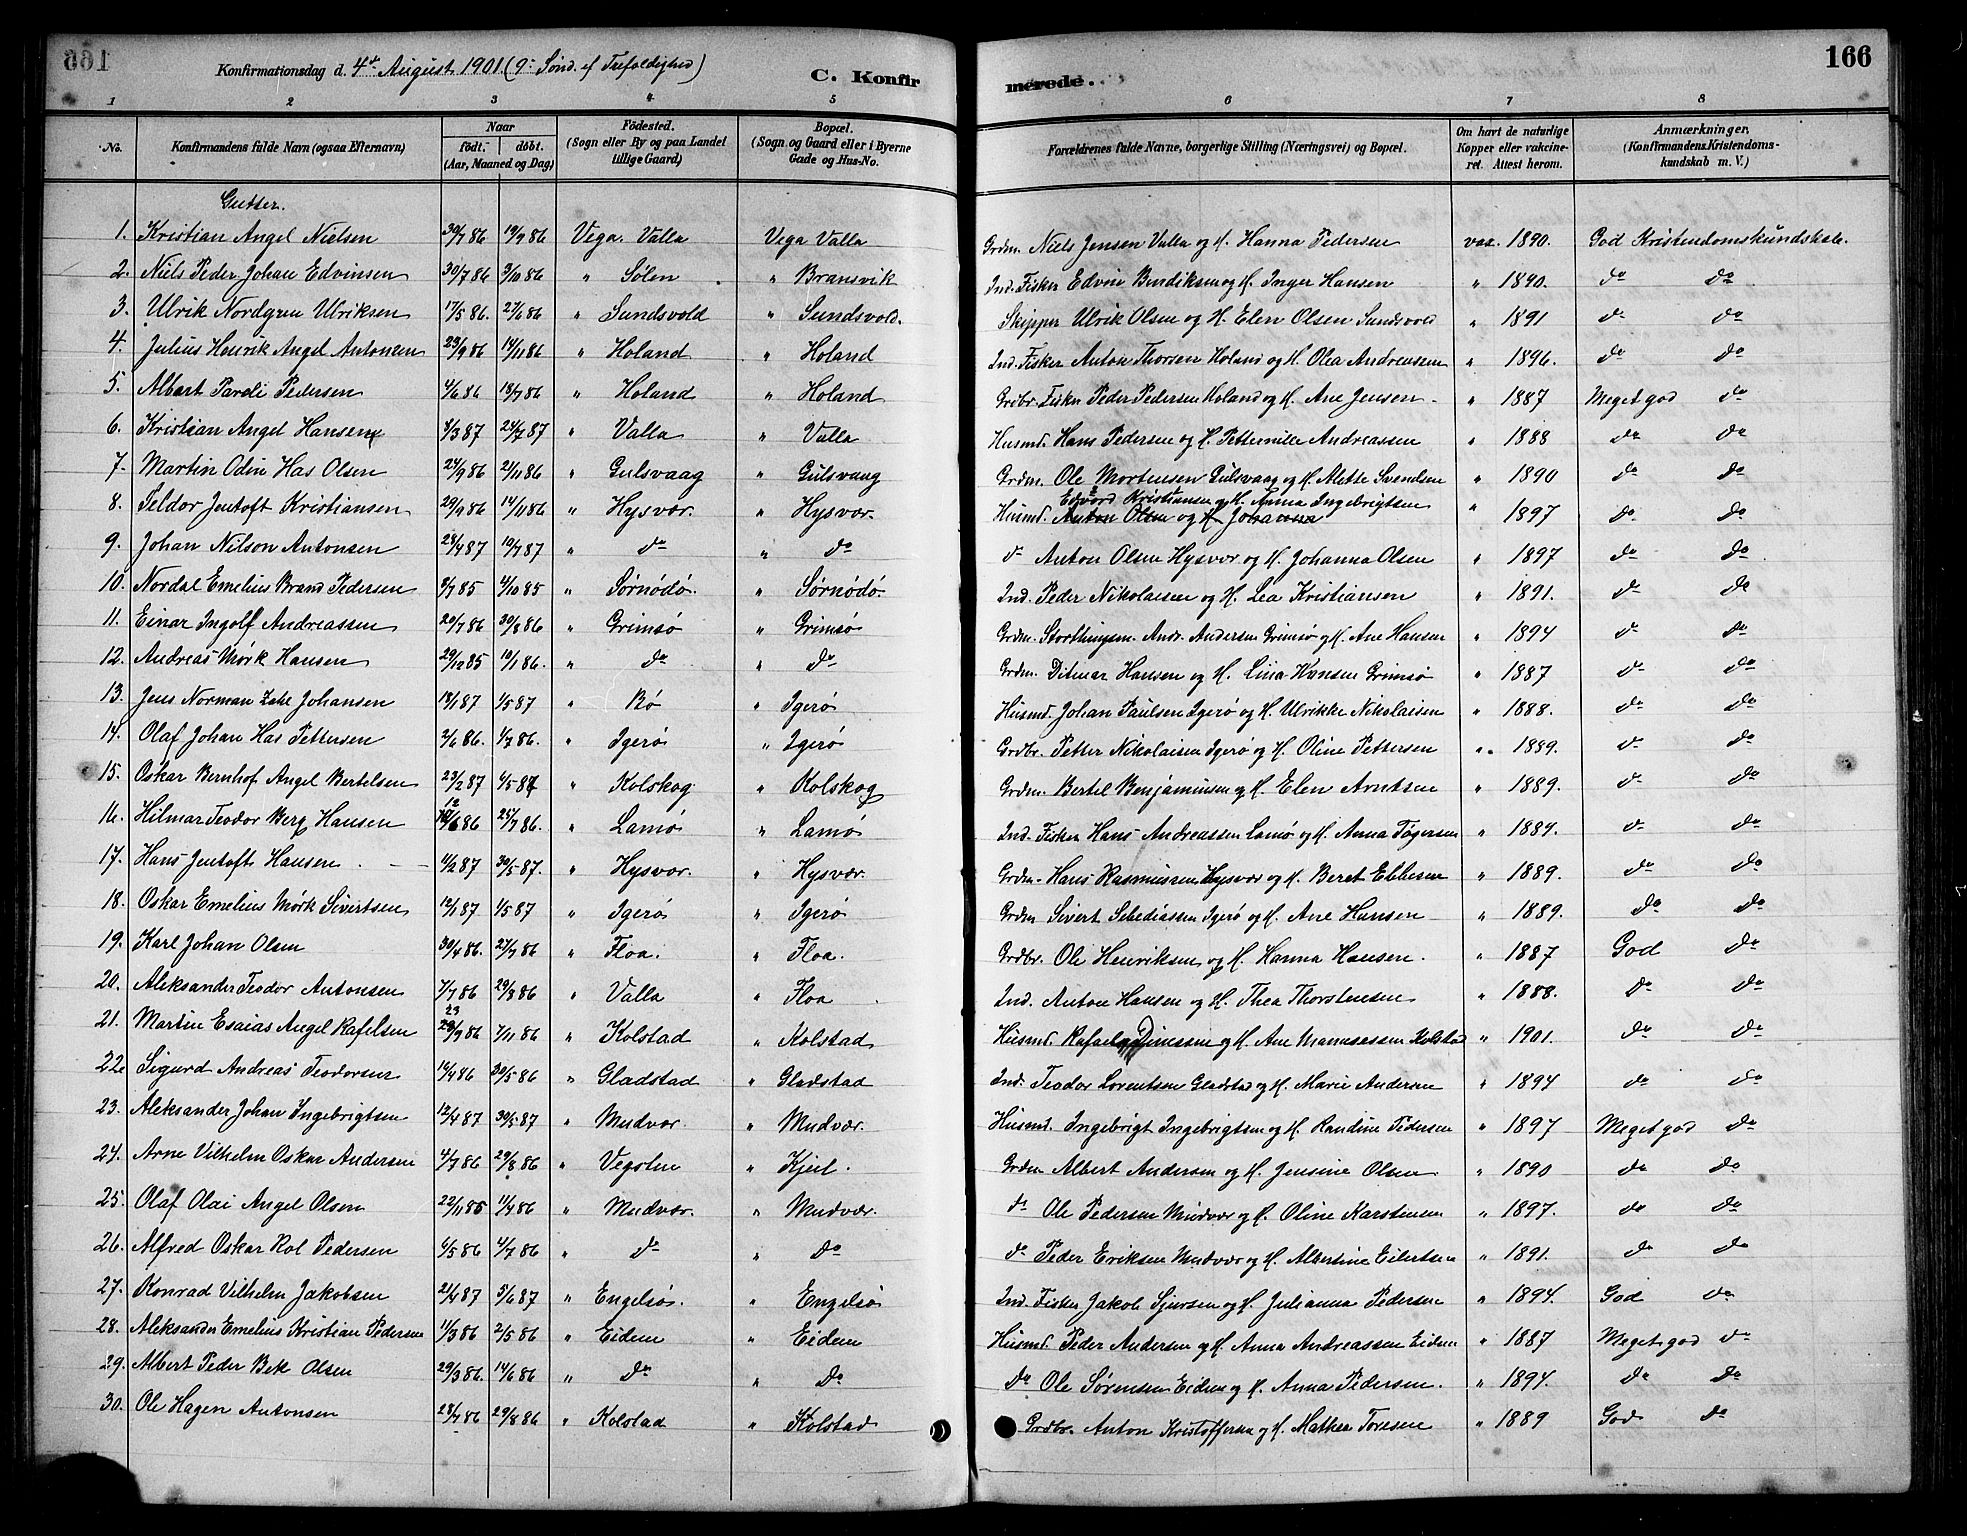 166
Konfirmationsdag d. 4de August 1901 (9. Sønd. ef Trefoldighed) C. Konfirmerede. 166
1 2 3 4 5 6 7 8
No. Konfirmandens fulde Navn (ogsaa Efternavn) Naar födt. döbt. (Aar, Maaned og Dag) Födested. (Sogn eller By og paa Landet tillige Gaard) Bopæl. (Sogn og Gaard eller i Byerne Gade og Hus-No. Forældrenes fulde Navne, borgerlige Stilling (Næringsvei) og Bopæl. Om havt de naturlige Kopper eller vakcineret. Attest herom. Anmærkninger, (Konfirmandens Kristendomskundskab m. V.)
Gutter.
1. Kristian Angel Nielsen 30/7 86 19/9 86 Vega. Valla Vega Valla Grdm. Niels Jensen Valla og H. Hanna Pedersen vac. 1890. God Kristendomskundskab.
2. Niels Peder Johan Edvinsen 30/7 86 3/10 86 " Sølen " Bransvik Ind. Fisker Edvin Bendiksen og H. Inger Hansen " 1890. do do
3. Ulrik Nordgren Ulriksen 17/5 86. 27/6 86 " Sundsvold " Sundsvold. Skipper Ulrik Olsen og H. Elen Olsen Sundsvold " 1891 do do
4. Julius Henrik Angel Antonsen 23/9 86 14/11 86 " Holand " Holand Ind. Fisker Anton Thorsen Holand og H. Olea Andreassen " 1896. do do
5. Albert Pareli Pedersen 4/6 86 18/7 86 " Holand " Holand Grdbr. Fisker Peder Pedersen Holand og H. Ane Jensen. " 1887 Meget god do
6. Kristian Angel Hansen 8/3 87 24/7 87 " Valla " Valla Husmd. Hans Pedersen og H. Pettermille Andreassen " 1888 do do
7. Martin Odin Has Olsen 24/9 86 21/11 86 " Gulsvaag " Gulsvaag Grdm. Ole Mortensen Gulsvaag og H. Alette Svendsen " 1890 do do
8. Teldor Jentoft Kristiansen 29/9 86 14/11 86 " Hysvær. " Hysvær. Husmd. Edvard Kristiansen og H. Anna Ingebrigtsen Anton Olsen og H. Johanna " 1897 do do
9. Johan Nilson Antonsen 28/4 87 10/7 87 " do " do do Anton Olsen Hysvær og H. Johanna Olsen " 1897 do do
10. Nordal Emelius Brand Pedersen 8/7 85 4/10 85 " Sørnødø. " Sørnødø. Ind. Peder Nikolaisen og H. Lea Kristiansen " 1891. do do
11. Einar Ingolf Andreassen 20/7 86 30/8 86 " Grimsø " Grimsø Grdm. Storthingsm. Andr. Andersen Grimsø og H. Ane Hansen " 1894 do do
12. Andreas Mørk Hansen 29/10 85 10/1 86. " do " do Grdm. Ditmar Hansen og H. Lina Hansen Grimsø " 1887 do do
13. Jens Norman Zahl Johansen 13/1 87 1/5 87 " Bø " Igerø Husmd. Johan Paulsen Igerø og H. Ulrikke Nikolaisen " 1888. do do
14. Olaf Johan Has Pettersen 2/6 86. 4/7 86. " Igerø " Igerø Grdbr. Petter Nikolaisen Igerø og H. Oline Pettersen " 1889. do do
15. Oskar Bernhof Angel Bertelsen 23/2 87 4/5 87 " Kolskog " Kolskog Grdm. Bertel Benjaminsen og H. Elen Arntsen " 1889. do do
16. Hilmar Teodor Berg Hansen 12/6 86 25/7 86. " Lamø " Lamø Ind. Fisker Hans Andreassen Lamø og H. Anna Tøgersen " 1884. do do
17. Hans Jentoft Hansen 11/2 87 30/5 87. " Hysvær. " Hysvær. Grdm. Hans Rasmussen Hysvær og H. Beret Ebbesen " 1889. do do
18. Oskar Emelius Mørk Sivertsen 12/1 87 1/5 87 " Igerø " Igerø Grdm Sivert Sebediassen Igerø og H. Ane Hansen " 1889. do do
19. Karl Johan Olsen 30/4 86. 27/7 86 " Floa. " Floa. Grdbr. Ole Henriksen og H. Hanna Hansen. " 1887 God do
20. Aleksander Teodor Antonsen 7/7 86 29/8 86 " Valla " Floa Ind. Anton Hansen og H. Thea Thorstensen " 1888. do do
21. Martin Esaias Angel Rafelsen 23/9 86 7/11 86 " Kolstad " Kolstad Husmd. Rafael Dinessen og H. Ane Mannsessen Kolstad " 1901. do do
22. Sigurd Andreas Teodorsen 16/4 86 30/5 86 " Gladstad " Gladstad Ind. Teodor Lorentsen Gladstad og H. Marie Andersen " 1894 do do
23. Aleksander Johan Ingebrigtsen 12/4 87 30/5 87 " Mudvær. " Mudvær. Husmd. Ingebrigt Ingebrigtsen og H. Randine Pedersen " 1897 Meget god do
24. Arne Vilhelm Oskar Andersen 4/7 86 29/8 86 " Vegolm " Kjeil. Grdm Albert Andersen og H. Jensine Olsen " 1890 do do
25. Olaf Olai Angel Olsen 22/11 85 11/4 86 " Mudvær. " Mudvær. do Ole Pedersen Mudvær og H. Oline Karstensen " 1897. do do
26. Alfred Oskar Rol Pedersen 6/5 86 4/7 86 " do " do do Peder Eriksen Mudvær og H. Albertine Eilertsen " 1891. do do
27. Konrad Vilhelm Jakobsen 21/4 87 5/6 87 " Engelsø. " Engelsø Ind. Fisker Jakob Sjursen og H. Julianna Pedersen " 1894. God do
28. Aleksander Emelius Kristian Pedersen 11/3 86 2/5 86 " Eidem " Eidem Husmd. Peder Andersen og H. Anna Andreassen Eidem " 1887 Meget god do
29. Albert Peder Bek Olsen 29/3 86. 14/6 86 " do " do do Ole Sørensen Eidem og H. Anna Pedersen. " 1894. do do
30. Ole Hagen Antonsen 23/7 86 29/8 86 " Kolstad " Kolstad Grdbr. Anton Kristoffersen og H. Mathea Toresen " 1889 God do